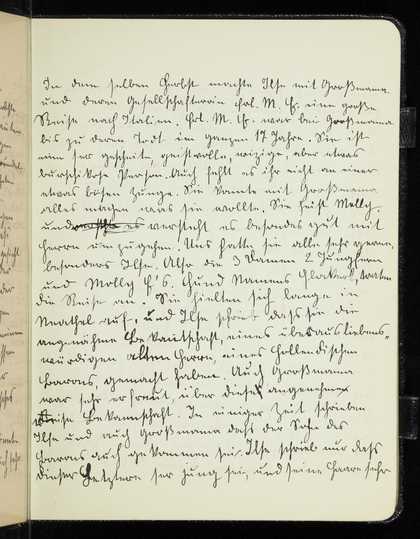 In dem selben Herbst machte Ilse mit Großmama
und deren Gesellschafterin Frl. M. H. eine große
Reise nach Italien. Frl. M. H. war bei Großmama
bis zu deren Todt im ganzen 17 Jahre. Sie ist
eine ser gescheite, geistvolle, wizige, aber etwas
burschikose Person. Auch fehlt es ihr nicht an einer
etwas bösen Zunge. Sie konnte mit Großmama
alles machen was sie wollte. Sie heist Molly.
und versteht es besonders gut mit
Herrn umzugehen. Uns hatte sie alle sehr gerne,
besonders Ilse. Also die 3 Damen 2 Jungfern
und Molly H's. Hund Namens traten
die Reise an. Sie hielten sich lange in
Neapel auf, und Ilse schrieb dass sie die
angenehme Bekantschaft, eines überaus liebens-
würdigen alten Herrn, eines hollendischen
Barons, gemacht haben. Auch Großmama
war sehr erfreut, über diese angenehme
Bekanntschaft. In einiger Zeit schrieben
Ilse und auch Großmama daß der Sohn des
Barons auch gekommen sei. Ilse schrieb nur dass
dieser Letztere ser jung sei, und seine Haare sehr